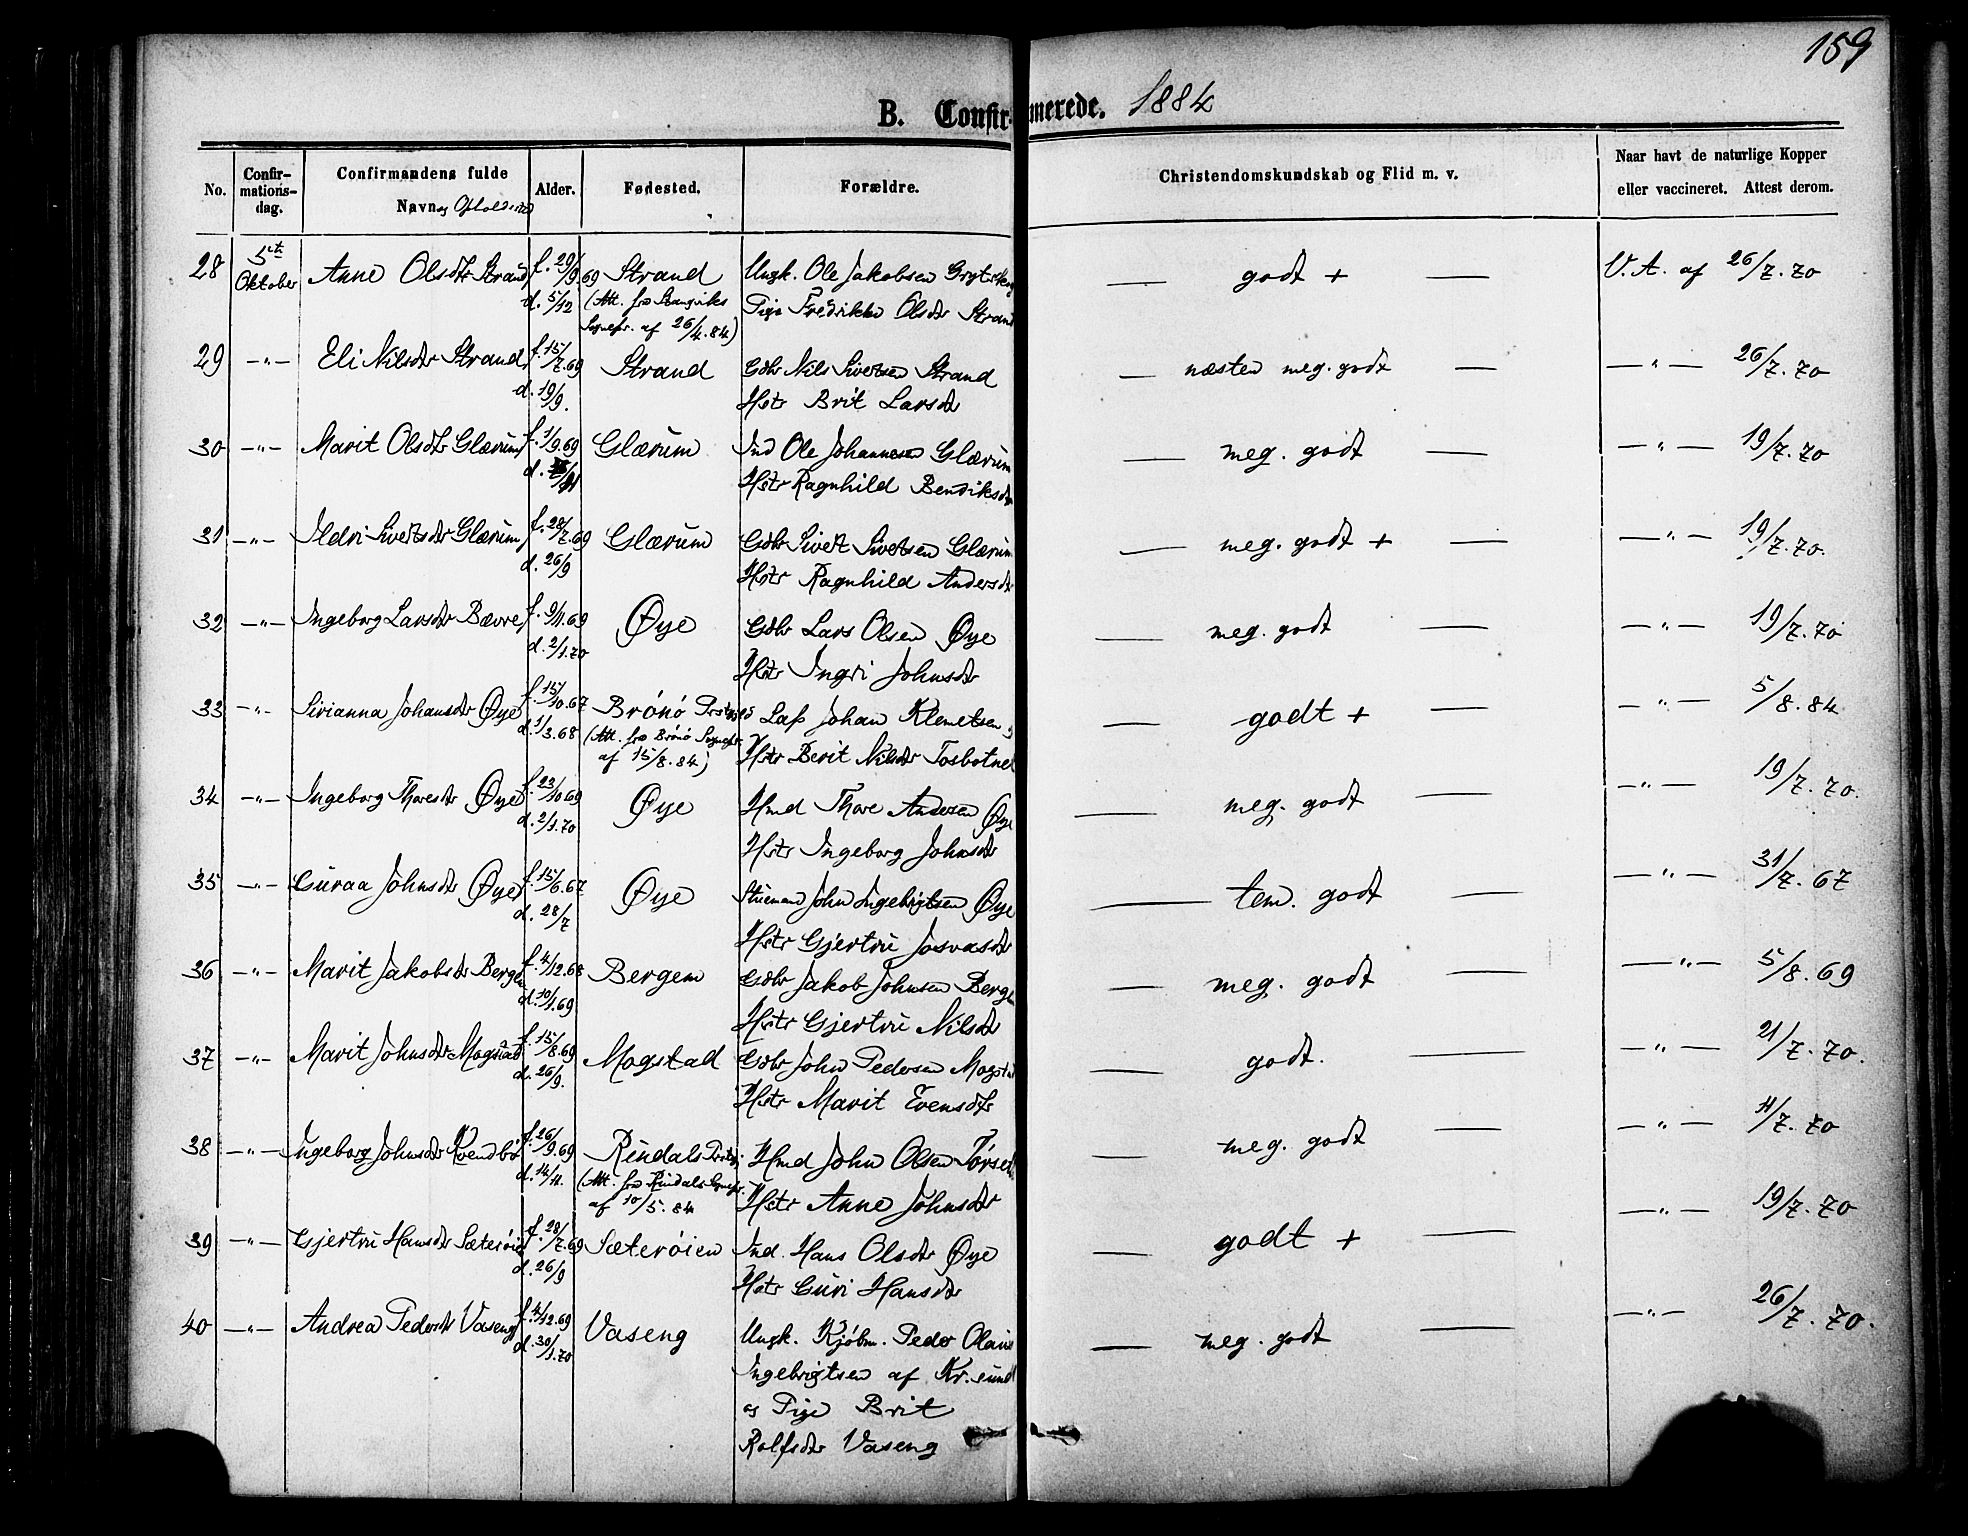 159
B. Confirmerede. 1884
No.
Confir-
mations-
dag.
Confirmandens fulde
Navn og Opholdssted
Alder.
Fødested.
Forældre.
Christendomskundskab og Flid m. v.
Naar havt de naturlige Kopper
eller vaccineret. Attest derom.
28 5te Oktober Anne Olsdtr Strand f. 29/9.69 Strand Ungk. Ole Jakobsen — godt + — V.A. af 26/7.70
d. 5/12 (Att. fra Stangviks Pige Fredrikke Olsdtr Strand
Sognepr. af 26/4.84)
29 —"— Eli Nilsdtr Strand f. 15/7.69 Strand Gdbr Nils Sivertsen Strand — næsten meg. godt — —"— 26/7.70
d. 19/9. Hstr Brit Larsdtr
30 —"— Marit Olsdtr Glærum f. 1/9.69 Glærum Ind Ole Johannesen Glærum — meg. godt — —"— 19/7.70
d. Hstr Ragnhild Bendiksdtr
31 —"— Ildri Sivertsdtr Glærum f. 28/7.69 Glærum Gdbr Sivert Sivertsen Glærum — meg. godt + — —"— 19/7.70.
d. 26/9 Hstr Ragnhild Andersdtr
32 —"— Ingeborg Larsdtr Bævre f. 9/11.69 Øye Gdbr Lars Olsen Øye — meg. godt — —"— 19/7.70
d. 2/1.70 Hstr Ingri Johnsdtr
33 —"— Sirianna Johansdtr Øye f. 15/10.67 Brónó Johan Klemetsen — godt + — —"— 5/8.84
d. 1/3.68 (Att. fra Brónó Sognepr. Hstr Berit Nilsdtr Tosbotnet
af 15/8.84)
34 —"— Ingeborg Thoresdtr Øye f. 23/10.69 Øye Hmd Thore Andersen Øye — meg. godt — —"— 19/7.70.
d. 2/1.70 Hstr Ingeborg Johnsdtr
35 —"— Guraa Johnsdtr Øye f. 15/6.67 Øye Stuemand John Ingebrigtsen Øye — tem. godt — —"— 31/7.67
d. 28/7 Hstr Gjertru Josvasdtr
36 —"— Marit Jakobsdtr Bergem f. 4/12.68 Bergem Gdbr Jakob Johnsen Bergem — meg. godt — —"— 5/8.69
d. 10/1.69 Hstr Gjertru Nilsdtr
37 —"— Marit Johnsdtr Mogstad f. 15/8.69 Mogstad Gdbr John Pedersen Mogstad — godt. — —"— 21/7.70.
d. 26/9. Hstr Marit Evensdtr
38 —"— Ingeborg Johnsdtr Kvendbó f. 26/9.69 Rindals Prstgj Hmd John Olsen — meg. godt — —"— 11/7.70
d. 14/11. (Att. fra Rindals Sognepr. Hstr Anne Johnsdtr
af 10/5.84
39 —"— Gjertru Hansdtr Sæteróien f. 28/7.69 Sæteróien Ind. Hans Olsdtr Øye — godt + — —"— 19/7.70
d. 26/9 Hstr Guri Hansdtr
40 —"— Andrea Pedersdtr Vaseng f. 4/12.69 Vaseng Ungk. Kjóbm. Peder Olaus — meg. godt — —"— 26/7.70.
d. 30/1.70 Ingebrigtsen af Kr.sund
og Pige Brit
Rolfsdtr Vaseng